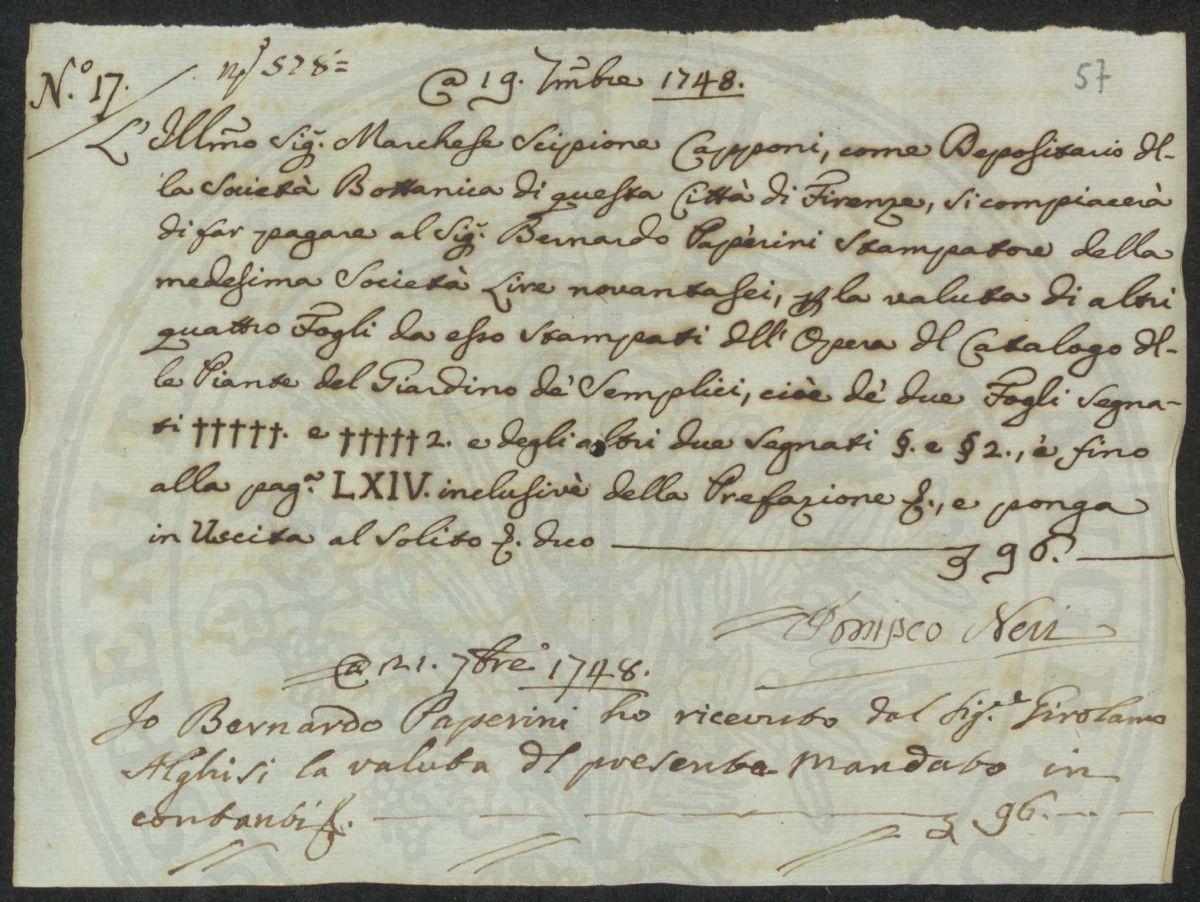 N.° 17.
578=
57
A 19. 7mbre 1748.
L' Illmo Sig.r Marchese Scipione Capponi, come Depositario dl-
la Società Bottanica di questa Città di Firenze, si compiacerà
di far pagare al Sig.r Bernardo Papèrini Stampatore della
medesima Società Lire novantasei, p la valuta di altri
quattro Fogli da esso stampati dell' Opera dl Catalogo dl-
le Piante del Giardino dè Semplici, cioè dè due Fogli segna-
ti †††††. e †††††2. e degli altri due segnati §. e §2., è fino
alla pag.a LXIV. inclusivè della Prefazione &., e ponga
in Uscita al solito &. duo 96.
Pompeo Neri
A 21. 7bre 1748.
Io Bernardo Paperini ho ricevuto dal Sig.r Girolamo
Alghisi la valuta dl presente Mandato in
contanti &. 96.